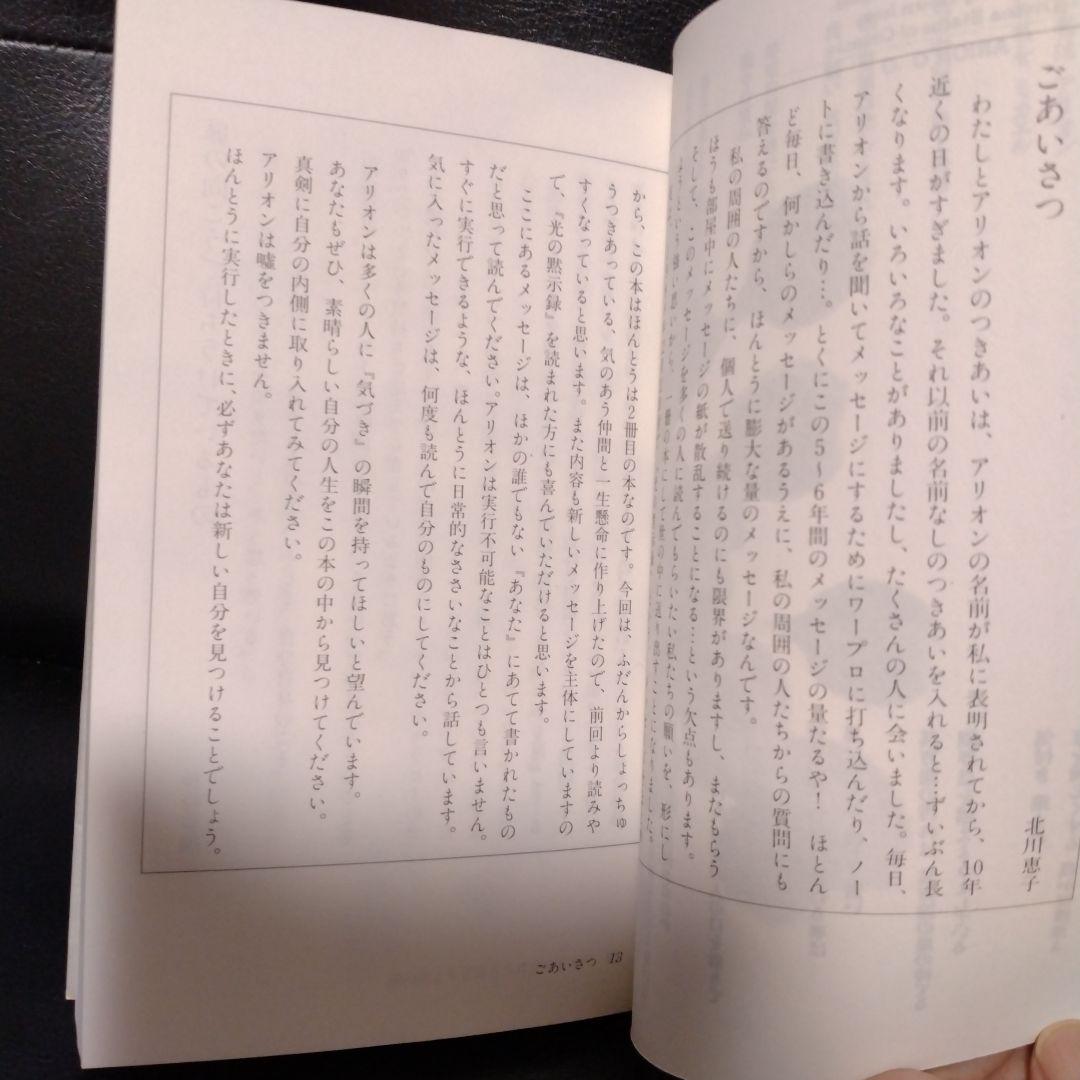 ごあいさつ
北川恵子
わたしとアリオンのつきあいは、アリオンの名前が私に表明されてから、10年
近くの日がすぎました。それ以前の名前なしのつきあいを入れると…ずいぶん長
くなります。いろいろなことがありましたし、たくさんの人に会いました。毎日、
アリオンから話を聞いてメッセージにするためにワープロに打ち込んだり、ノー
トに書き込んだり…。とくにこの5〜6年間のメッセージの量たるや！　ほとん
ど毎日、何かしらのメッセージがあるうえに、私の周囲の人たちからの質問にも
答えるのですから、ほんとうに膨大な量のメッセージなんです。
私の周囲の人たちに、個人で送り続けるのにも限界がありますし、またもらう
ほうも部屋中にメッセージの紙が散乱することになる…という欠点もあります。
そして、このメッセージを多くの人に読んでもらいたい私たちの願いを、形にし
ようという強い思いから、一冊の本にして世の中に送り出すことになりました。
から、この本はほんとうは2冊目の本なのです。今回は、ふだんからしょっちゅ
うつきあっている、気のあう仲間と一生懸命に作り上げたので、前回より読みや
すくなっていると思います。また内容も新しいメッセージを主体にしていますの
で、『光の黙示録』を読まれた方にも喜んでいただけると思います。
ここにあるメッセージは、ほかの誰でもない『あなた』にあてて書かれたもの
だと思って読んでください。アリオンは実行不可能なことはひとつも言いません。
すぐに実行できるような、ほんとうに日常的なささいなことから話しています。
気に入ったメッセージは、何度も読んで自分のものにしてください。
アリオンは多くの人に『気づき』の瞬間を持ってほしいと望んでいます。
あなたもぜひ、素晴らしい自分の人生をこの本の中から見つけてください。
真剣に自分の内側に取り入れてみてください。
アリオンは嘘をつきません。
ほんとうに実行したときに、必ずあなたは新しい自分を見つけることでしょう。
ごあいさつ 13